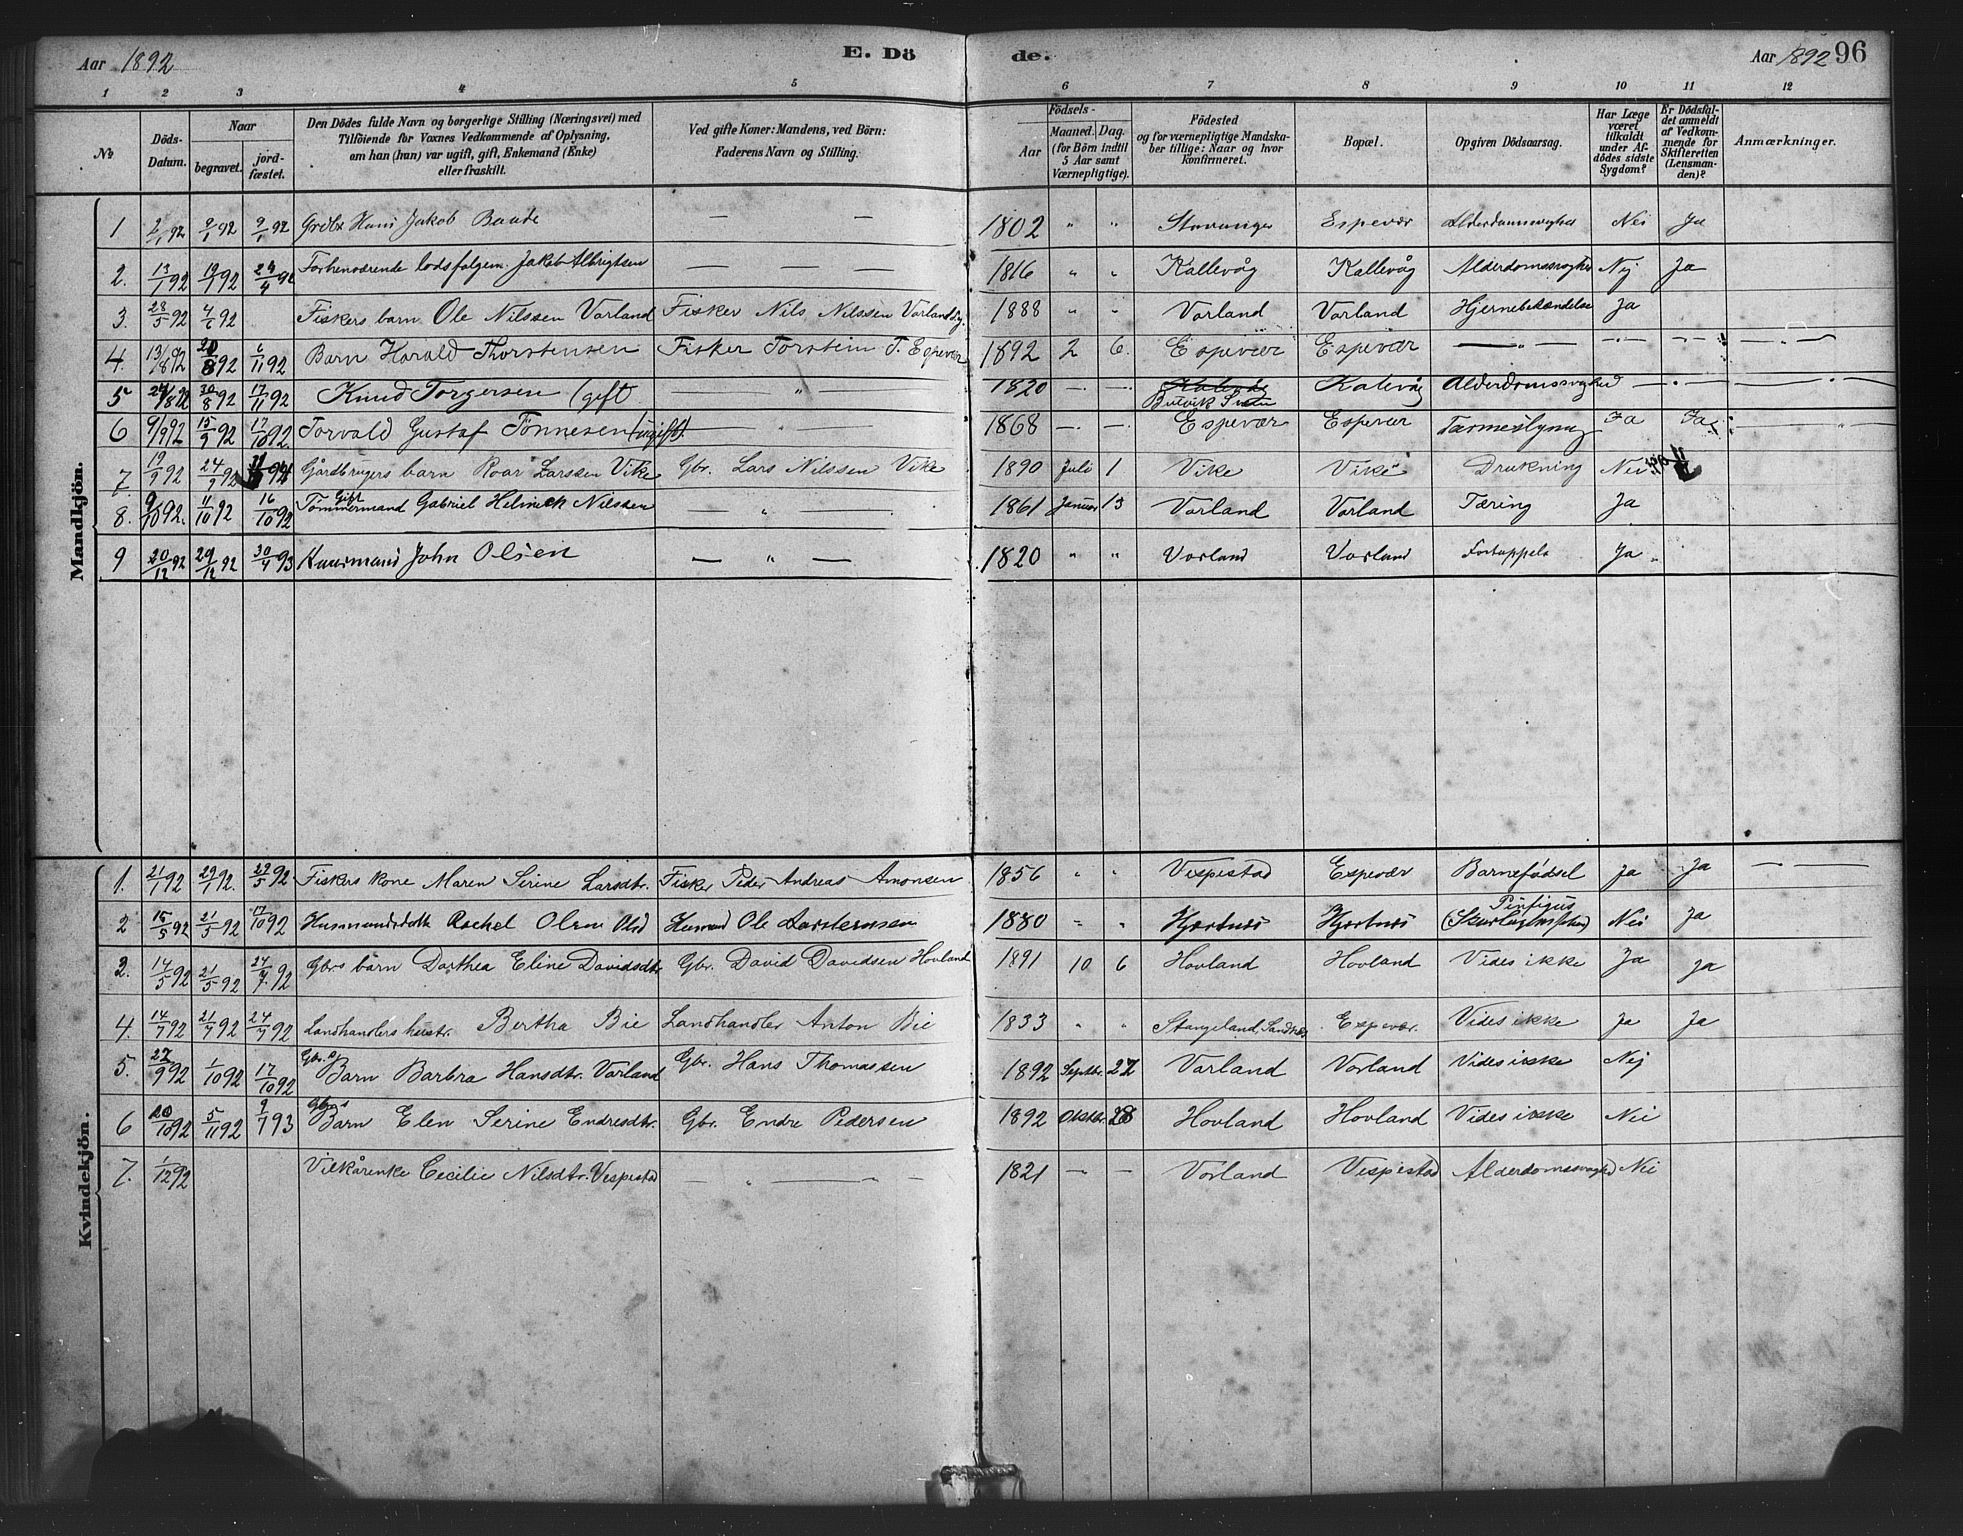 Aar 1892 E. Dö de. Aar 1892 96
1 2 3 4 5 6 7 8 9 10 11 12
№ Döds-Datum. Naar begravet. jordfæstet. Den Dödes fulde Navn og borgerlige Stilling (Næringsvei) med Tilföiende for Voxnes Vedkommende af Oplysning, om han (hun) var ugift, gift, Enkemand (Enke) eller fraskilt. Ved gifte Koner: Mandens, ved Börn: Faderens Navn og Stilling. Födsels- Aar Maaned. Dag. (for Börn indtil 5 Aar samt Værnepligtige). Födested og for værnepligtige Mandskaber tillige: Naar og hvor Konfirmeret. Bopæl. Opgiven Dödsaarsag. Har Læge været tilkaldt under Afdödes sidste Sygdom? Er Dödsfaldet anmeldt af Vedkommende for Skifteretten (Lensmanden)? Anmærkninger.
Mandkjön.
1 2/1 92 9/1 92 9/1 92 Hans Jakob Baade — — 1802 " " Stavanger Espevær Alderdomssvaghed Nei Ja
2. 13/1 92 19/1 92 Forhenværende lodsfolgem. Jakob Albrigtsen — — — 1816 " " Kallevåg Kallevåg Alderdomssvaghed Nej Ja
3. 28/5 92 4/6 92 Fiskers barn Ole Nilssen Vorland Fisker Nils Nilssen Vorland 1888 " " Vorland Vorland Hjernebetændelse Ja
4. 13/8 92 20/8 92 6/11 92 Barn Harald Thorstensen Fisker Torstein T. Espevær 1892 2 6. Espevær Espevær — " —
5 24/8 92 30/8 92 17/11 92 Knud Torgersen (gift " 1820 — — Kalevåg Alderdomssvaghed — —
6 9/9 92 15/9 92 17/10 92 Torvald Gustaf Tönnesen (ugift). — " — 1868 — — Espevær Espevær Tarmeslyng Ja Ja
7. 19/9 92 24/9 92 Gårdbrugers barn Roar Larssen Vike Gbr. Lars Nilssen Vike 1890 Juli 1 Vike Vike Drukning Nei
8. 9/10 92. 11/10 92 16/10 92 Gift Tømmermand Gabriel Helmick Nilssen — " — 1861 Januar 13 Vorland Vorland Tæring Ja
9 20/12 92 29/12 92 30/4 93 Kaarmand John Olsen — " — 1820 " " Vorland Vorland Ja
Kvindekjön.
1. 21/1 92 29/1 92. 29/5 92 Fiskers kone Maren Serine Larsdtr. Fisker Peder Andreas Amonsen 1856 " " Vespestad Espevær Barnefødsel Ja Ja — —
2 15/5 92 21/5 92 17/10 92 Husmandsdatt Rachel Olene Olsd Husmand Ole Larstensen 1880 " " Hjortnæs Hjortnæs Pemfigus Nei Ja
3. 14/5 92 21/5 92 24/7 92 Gbrs barn Dorthea Eline Davidsdtr Gbr. David Davidsen Hovland 1891 10 6 Hovland Hovland Vides ikke Ja Ja
4. 14/7 92 21/7 92 24/7 92 Landhandlers hustr. Bertha Bie Landhandler Anton Bie 1833 " " Stangeland, Sandnes Espevær. Vides ikke Ja Ja
5. 27/9 92 1/10 92 17/10 92 Gbr.s Barn Barbra Hansdtr. Vorland Gbr. Hans Thomassen 1892 Septbr. 27 Vorland Vorland Vides ikke Nej
6 20/10 92 5/11 92 9/7 93 Gbr.s Barn Elen Serine Endresdtr. Gbr. Endre Pedersen 1892 Oktbr. 28 Hovland Hovland Vides ikke Nei
7. 1/12 92 Vilkårenke Cecilie Nilsdtr. Vespestad — " — " — 1821 — — Vorland Vespestad Alderdomssvaghed Nei